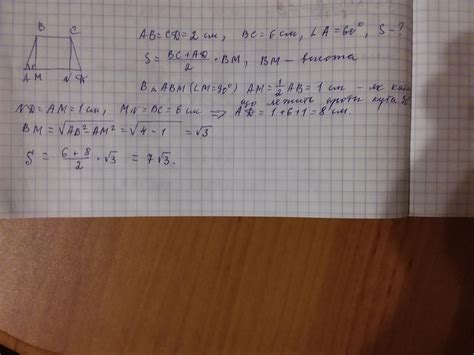 B C
A M N D
AB=CD=2 см, BC=6 см, ∠A=60°, S-?
S = (BC+AD)/2 · BM, BM – висота
В △ABM (∠M=90°) AM = 1/2 AB = 1 см – як катет
що лежить проти кута 30°
ND=AM=1 см, MN=BC=6 см ⟹ AD=1+6+1=8 см.
BM = √AB²-AM² = √4-1 = √3
S = (6+8)/2 · √3 = 7√3.